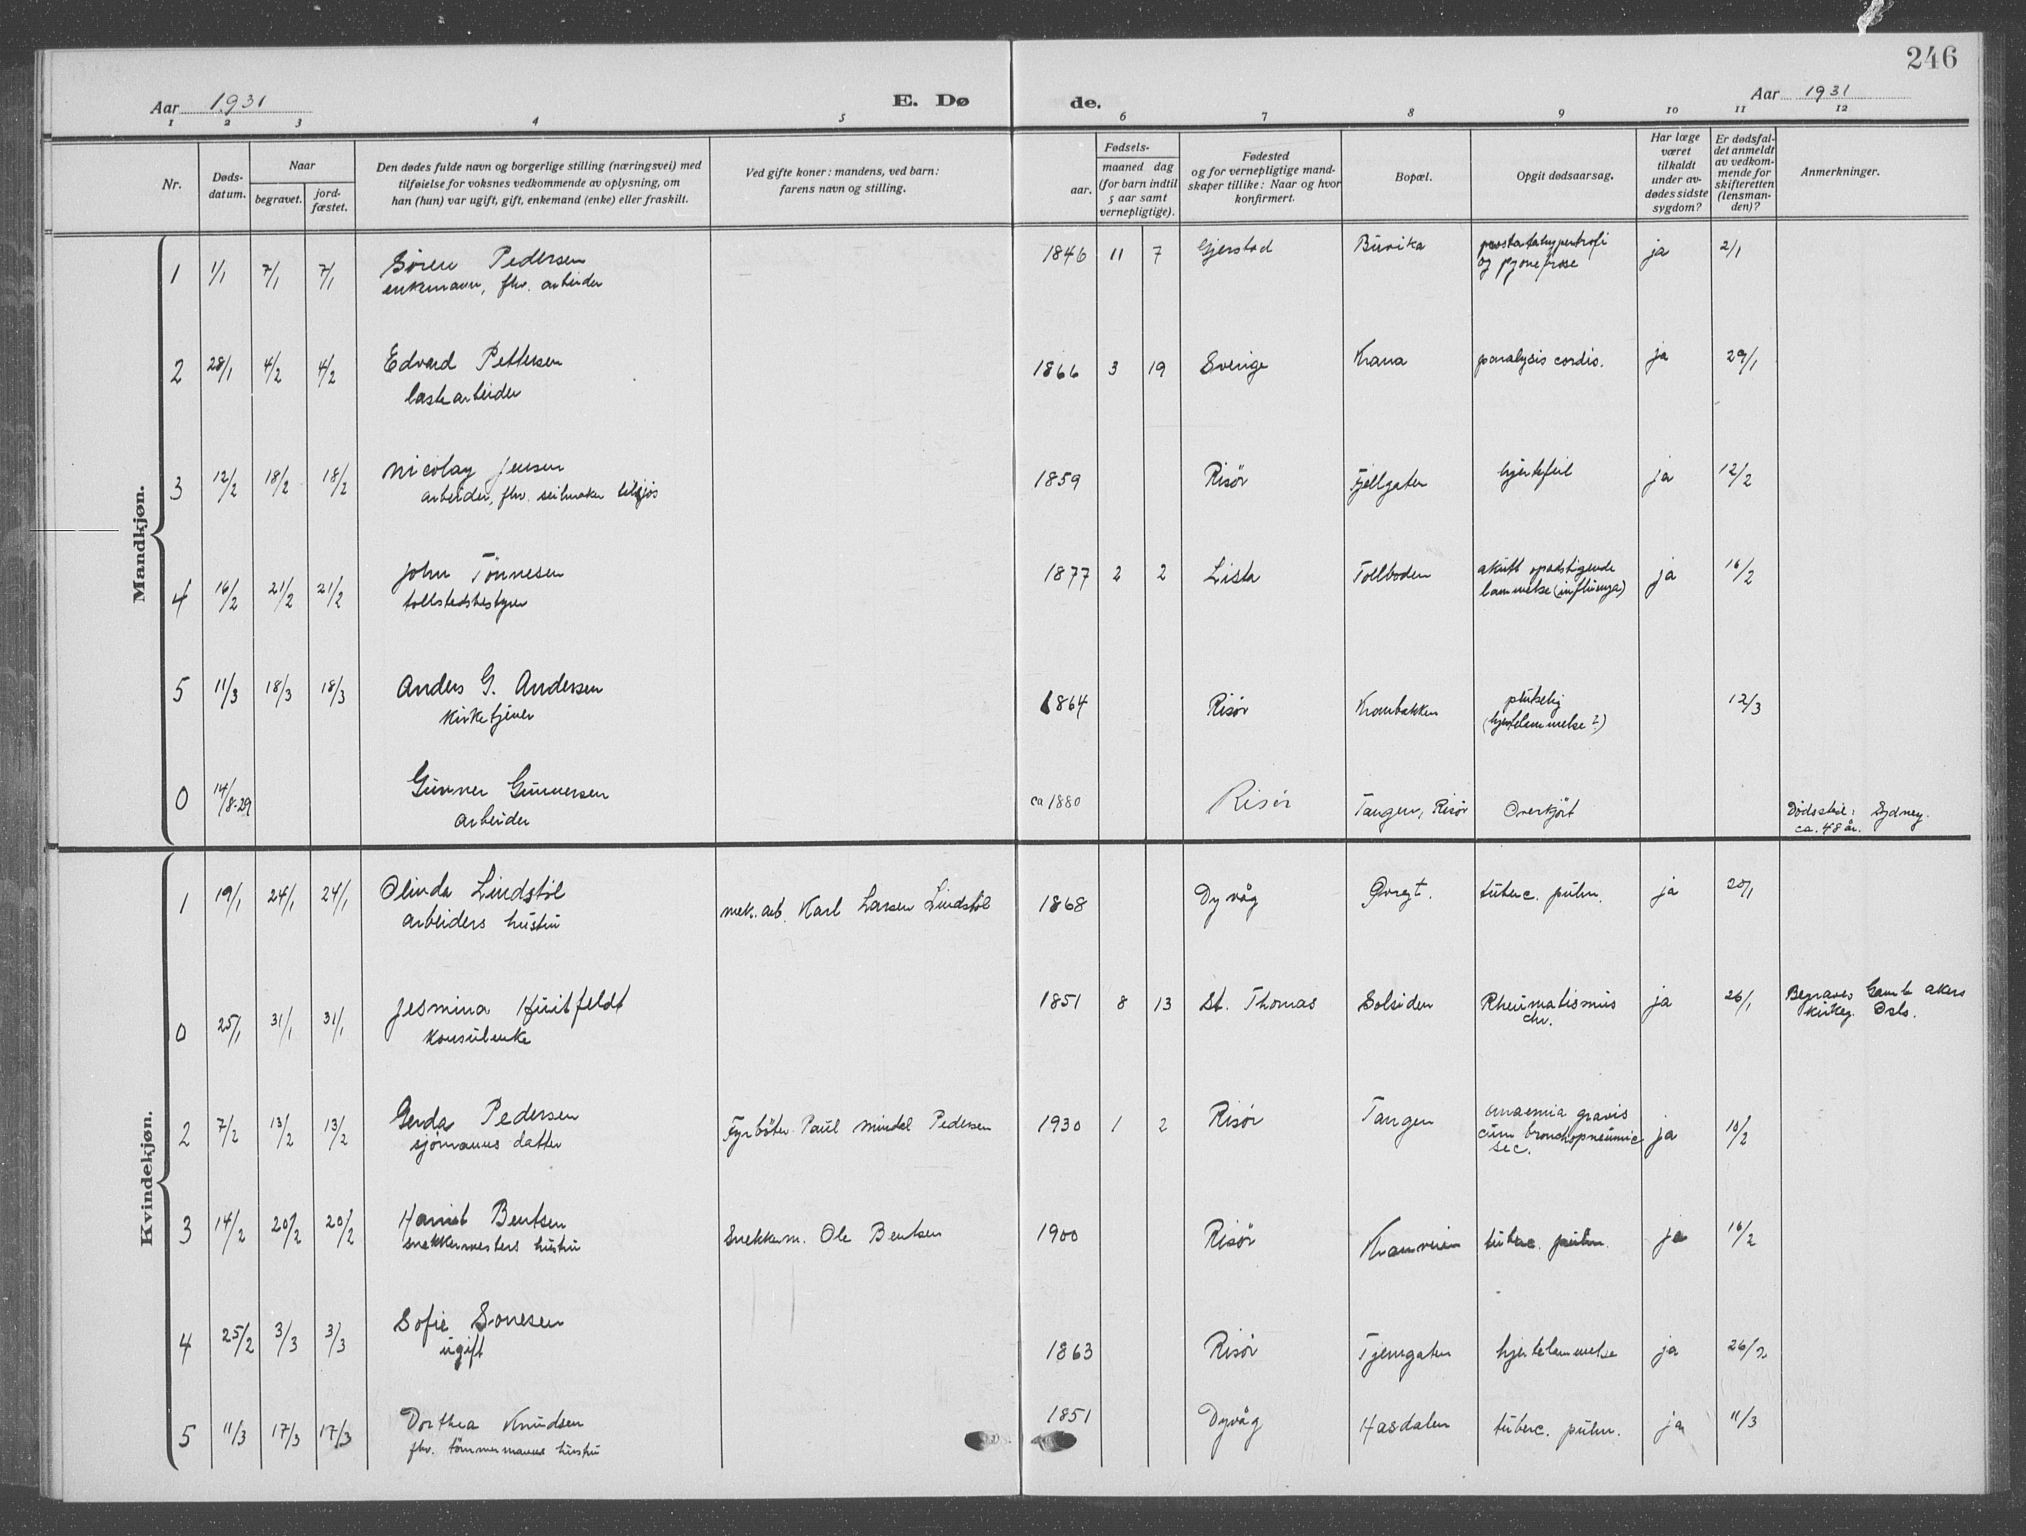 246
Aar 1931
E. Dø
de.
Aar 1931
1 2 3 4 5 6 7 8 9 10 11 12
Nr.
Døds-
datum.
Naar
begravet.
jord-
fæstet.
Den dødes fulde navn og borgerlige stilling (næringsvei) med
tilføielse for voksnes vedkommende av oplysning, om
han (hun) var ugift, gift, enkemand (enke) eller fraskilt.
Ved gifte koner: mandens, ved barn:
farens navn og stilling.
Fødsels-
aar.
maaned dag
(for barn indtil
5 aar samt
vernepligtige).
Fødested
og for vernepligtige mand-
skaper tillike: Naar og hvor
konfirmert.
Bopæl.
Opgit dødsaarsag.
Har læge
været
tilkaldt
under av-
dødes sidste
sygdom?
Er dødsfal-
det anmeldt
av vedkom-
mende for
skifteretten
(lensman-
den)?
Anmerkninger.
Mandkjøn.
1 1/1 7/1 7/1 Søren Pedersen 1846 11 7 Gjerstad Buvika prostatahypertrofi ja 2/1
enkemann, fhv. arbeider og pyonefrose
2 28/1 4/2 4/2 Edvard Pettersen 1866 3 19 Sverige Krana paralysis cordis. ja 29/1
lastearbeider
3 12/2 18/2 18/2 Nicolay Jensen 1859 Risør Fjellgaten hjertefeil ja 12/2
arbeider, fhv. seilmaker tilsjøs
4 16/2 21/2 21/2 John Tönnesen 1877 2 2 Lista Tollboden akutt opadstigende ja 16/2
tollstedsbestyrer lammelse (influenza)
5 11/3 18/3 18/3 Anders G. Andersen 1864 Risør Kranbakken plutselig 12/3
kirketjener (hjertelammelse?)
0 14/8-29 Gunner Gunnersen ca 1880 Risør Tangen, Risør Overkjört Dødssted: Sydney.
arbeider ca. 48 år.
Kvindekjøn.
1 19/1 24/1 24/1 Olinda Lindstöl mek. arb. Karl Larsen Lindstöl 1868 Dyvåg Øvregt. tuberc. pulm. ja 20/1
arbeiders hustru
0 25/1 31/1 31/1 Jesmina Huitfeldt 1851 8 13 St. Thomas Solsiden Rheumatismus ja 26/1 Begraves Gamle akers
konsulenke chr. kirkeg. Oslo.
2 7/2 13/2 13/2 Gerda Pedersen Fyrböter Paul Mindal Pedersen 1930 1 2 Risør Tangen anaemia gravis ja 10/2
sjømanns datter cum bronchopneumic
sec.
3 14/2 20/2 20/2 Harriet Bentsen Snekkerm. Ole Bentsen 1900 Risør Kranveien tuberc. pulm. ja 16/2
snekkermesters hustru
4 25/2 3/3 3/3 Sofie Sonesen 1863 Risør Tjenngaten hjertelammelse ja 26/2
ugift
5 11/3 17/3 17/3 Dorthea Knudsen 1851 Dyvåg Hasdalen tuberc. pulm. ja 11/3
fhv. tömmermanns hustru